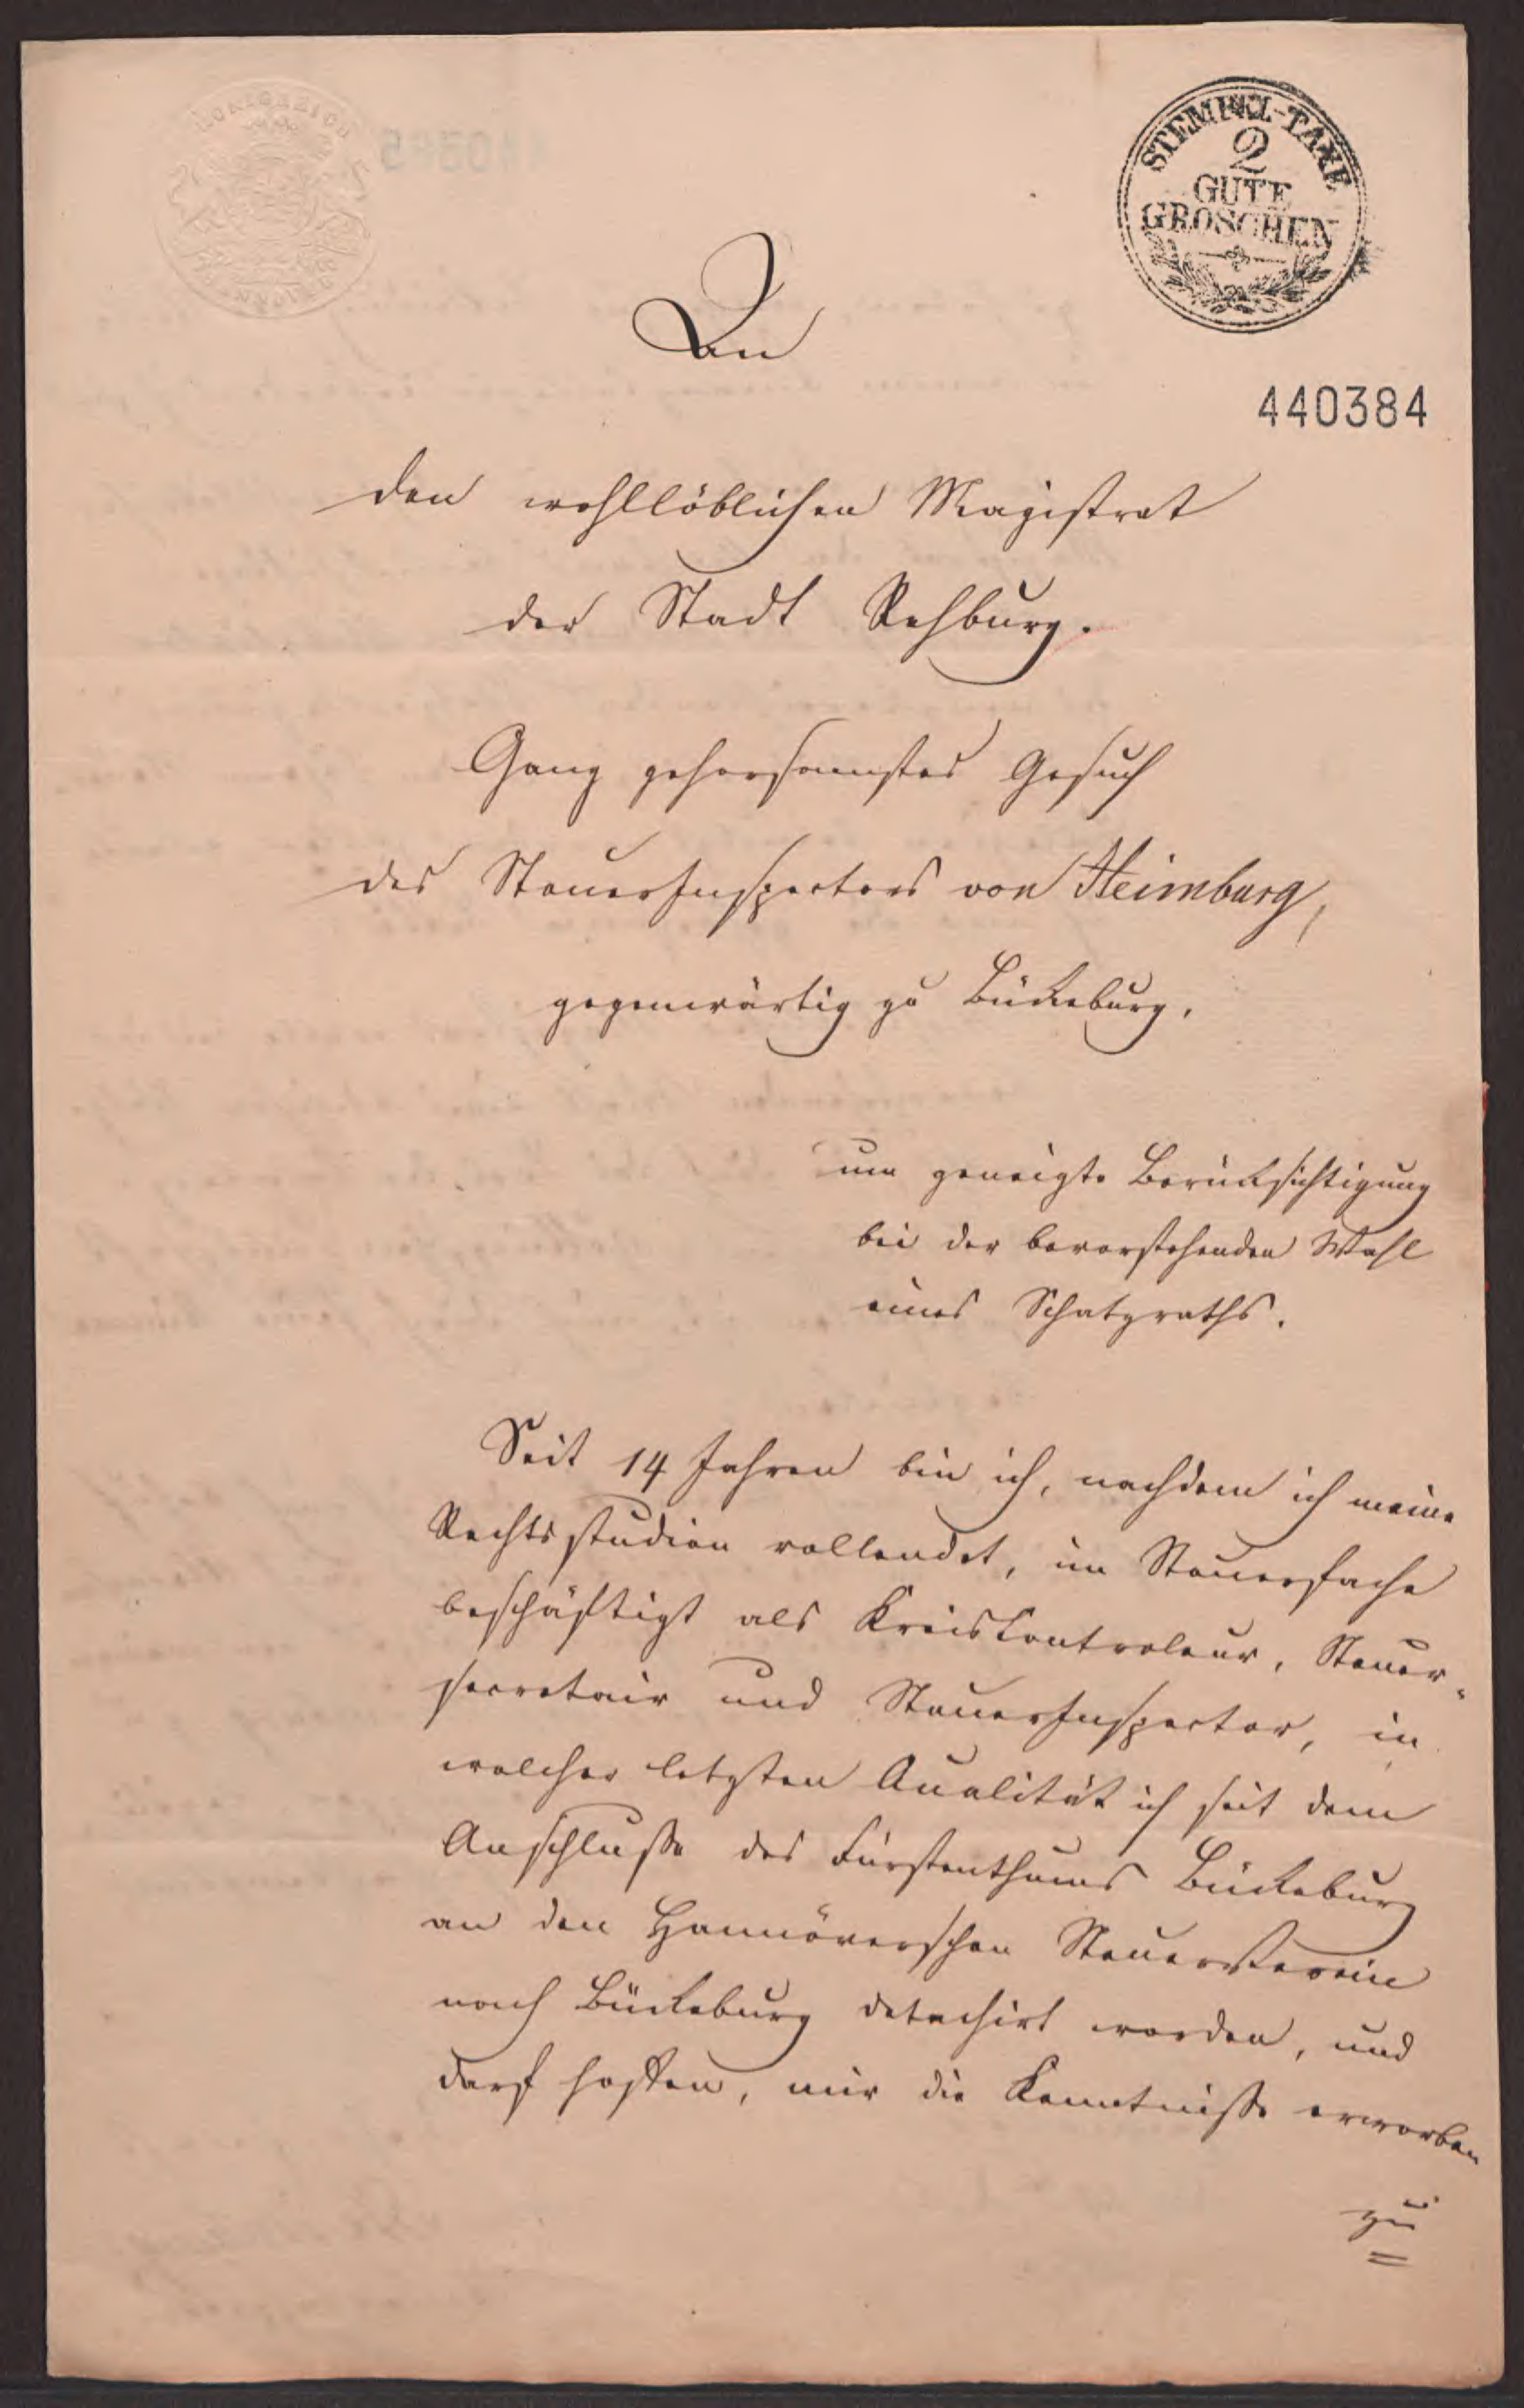 STEMPEL-TAXE
2
GUTE
GROSCHEN
440384
An
den wohllöblichen Magistrat
der Stadt Rehburg.
Ganz gehorsamstes Gesuch
des SteuerInspectors von Heimburg,
gegenwärtig zu Bückeburg,
um geneigte Berücksichtigung
bei der bevorstehenden Wahl
eines Schatzraths.
Seit 14 Jahren bin ich, nachdem ich meine
Rechtsstudien vollendet, im Steuerfache
beschäftigt als Kreiscontroleur, Steuer-
secretair und SteuerInspector, in
welcher letzten Qualität ich seit dem
Anschlusse des Fürstenthums Bückeburg
an den Hannöverschen Steuerverein
nach Bückeburg detachirt worden, und
darf hoffen, mir die Kenntnisse erworben
zu